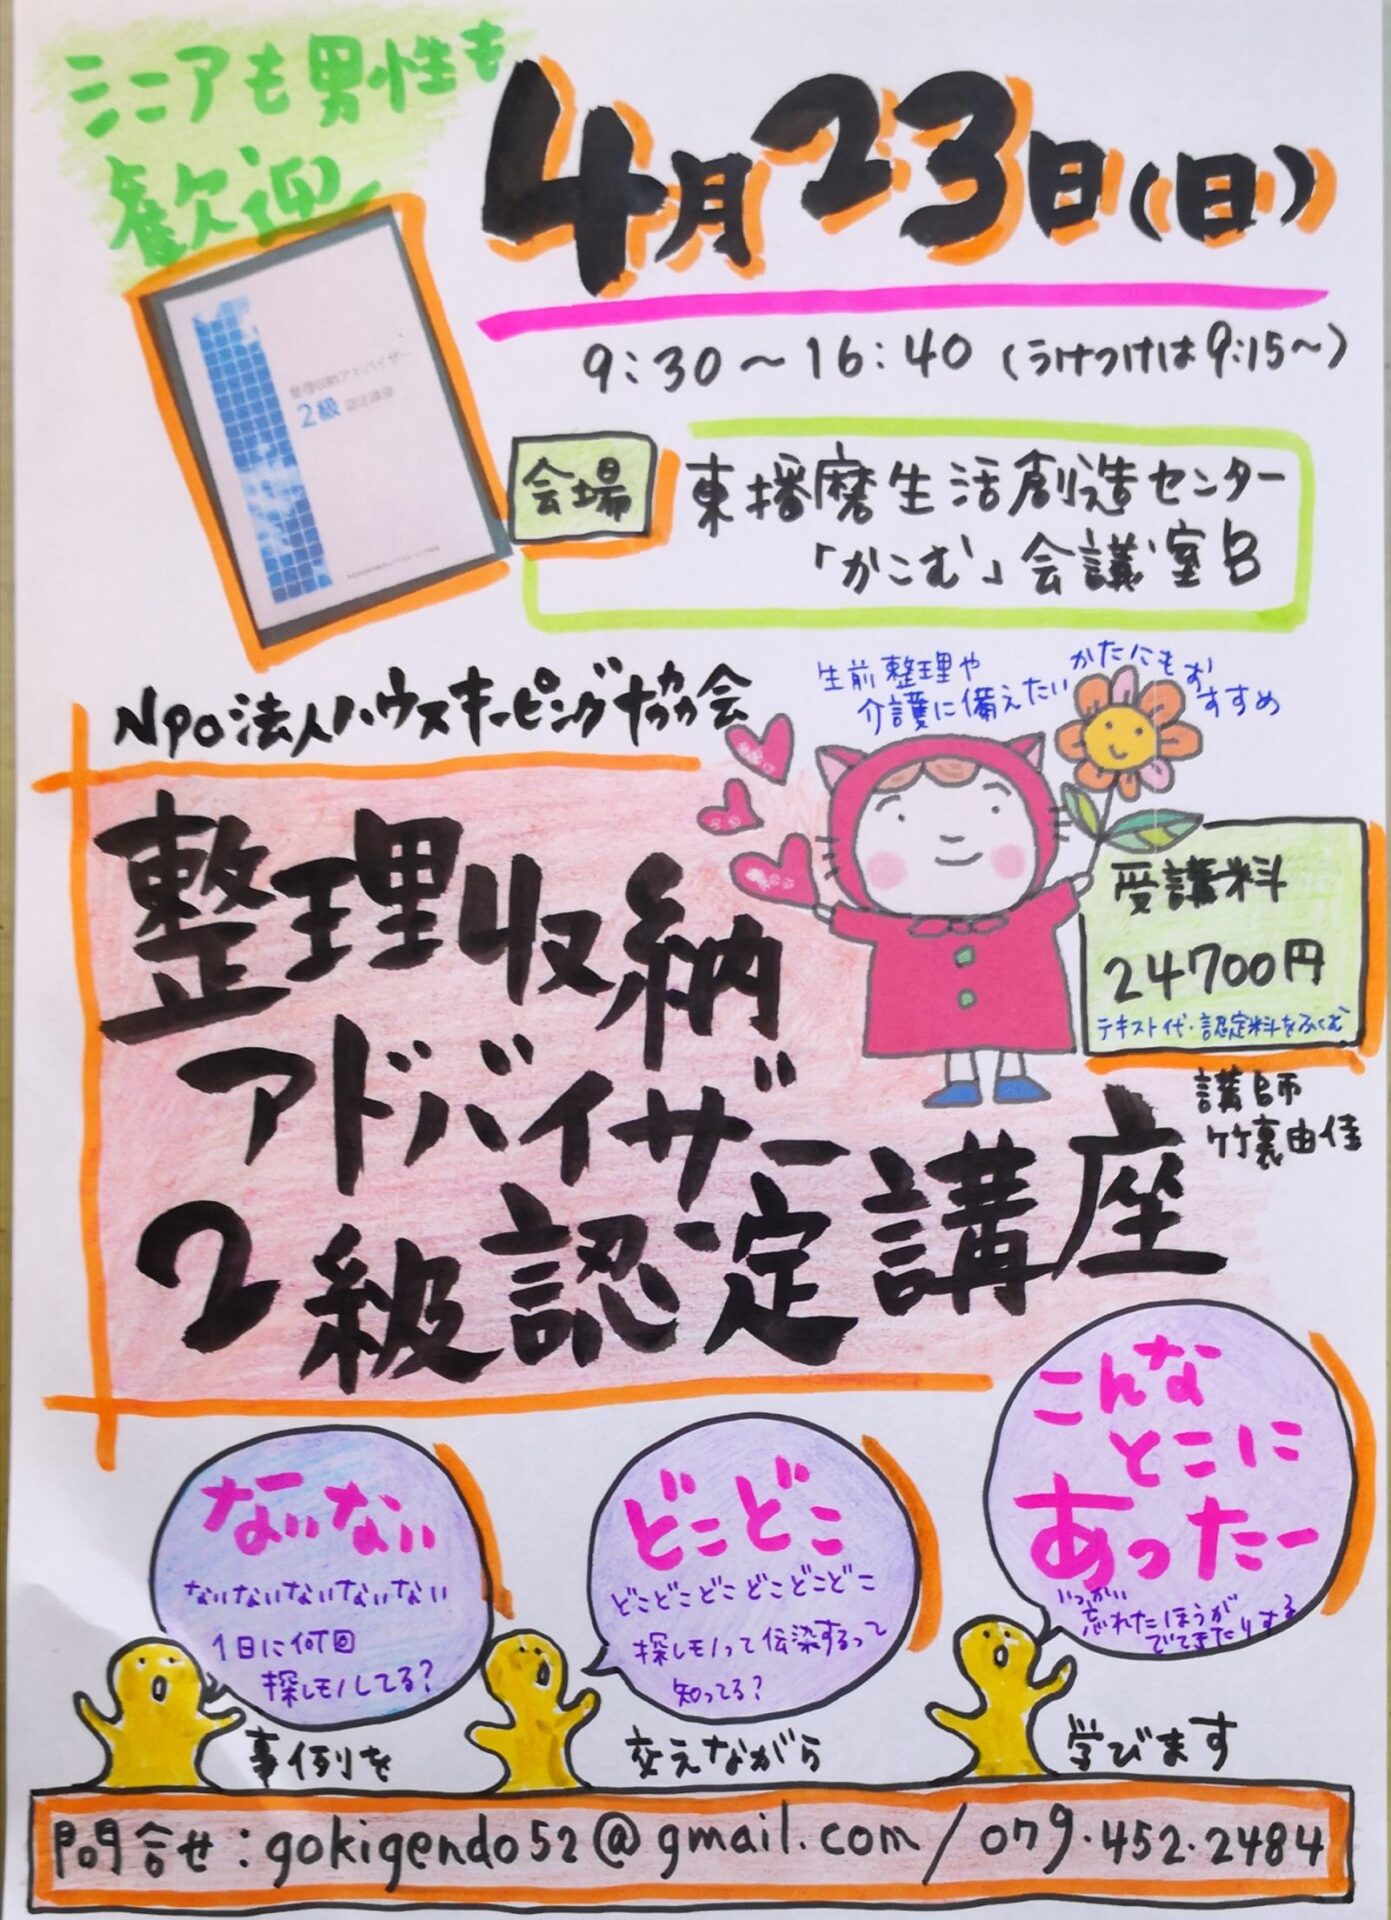 シニアも男性も
歓迎
4月23日(日)
9:30〜16:40(うけつけは9:15〜)
整理収納アドバイザー
2級 認定講座
会場
東播磨生活創造センター
「かこむ」会議室B
NPO法人ハウスキーピング協会
生前整理や
介護に備えたい
かたにもお
すすめ
整理収納
アドバイザー
2級認定講座
受講料
24700円
テキスト代・認定料をふくむ
講師
竹裏由佳
ないない
ないないないないない
1日に何回
探しモノしてる?
どこどこ
どこどこどこどこどこどこ
探しモノって伝染するって
知ってる?
こんな
とこに
あったー
いっかい
忘れたほうが
でてきたりする
事例を
交えながら
学びます
問合せ:gokigendo52@gmail.com/079.452.2484